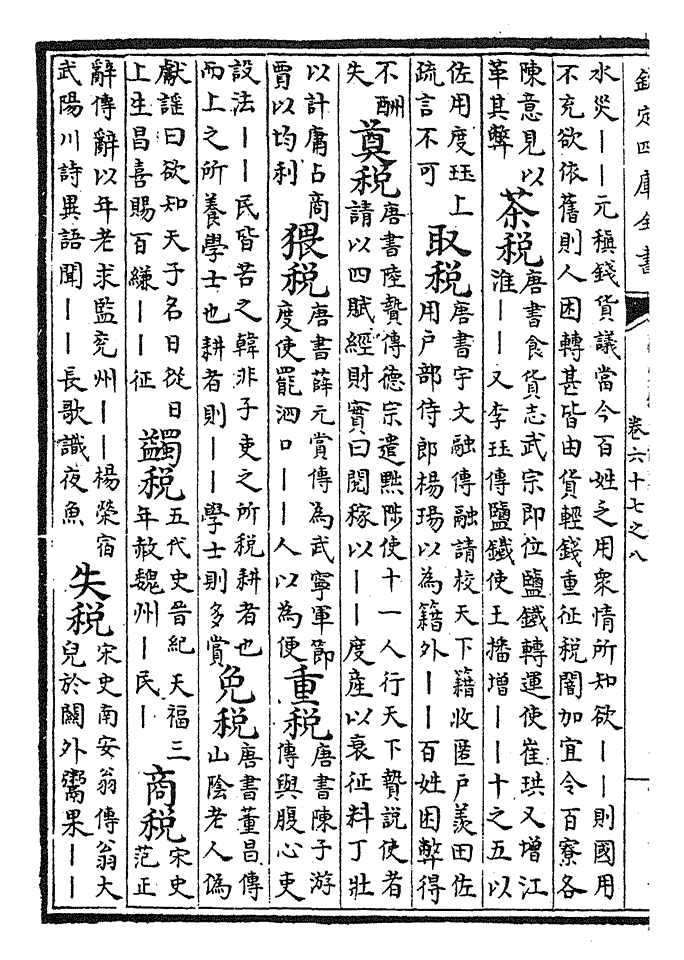 欽定四庫全書
卷六十七之八
水災丨丨元稹錢貨議當今百姓之用衆情所知欲丨丨則國用
不充欲依舊則人困轉甚皆由貨輕錢重征税闇加宜令百寮各
陳意見以
革其弊
茶税
唐書食貨志武宗即位鹽鐵轉運使崔珙又增江
淮丨丨又李珏傳鹽鐵使王播增丨丨十之五以
佐用度珏上
疏言不可
取税
唐書宇文融傳融請校天下籍收匿户羨田佐
用户部侍郎楊瑒以為籍外丨丨百姓困弊得
不酬
失
奠税
唐書陸贄傳德宗遣黜陟使十一人行天下贄説使者
請以四賦經財實曰閲稼以丨丨度産以衰征料丁壯
以計庸占商
賈以均利
猥税
唐書薛元賞傳為武寧軍節
度使罷泗口丨丨人以為便
重税
唐書陳子游
傳與腹心吏
設法丨丨民皆苦之韓非子吏之所税耕者也
而上之所養學士也耕者則丨丨學士則多賞
免税
唐書董昌傳
山陰老人偽
獻謡曰欲知天子名日從日
上生昌喜賜百縑丨丨征
蠲税
五代史晉紀天福三
年赦魏州丨民丨
商税
宋史
范正
辭傳辭以年老求監兗州丨丨楊榮宿
武陽川詩異語聞丨丨長歌識夜魚
失税
宋史南安翁傳翁大
兒於關外鬻果丨丨